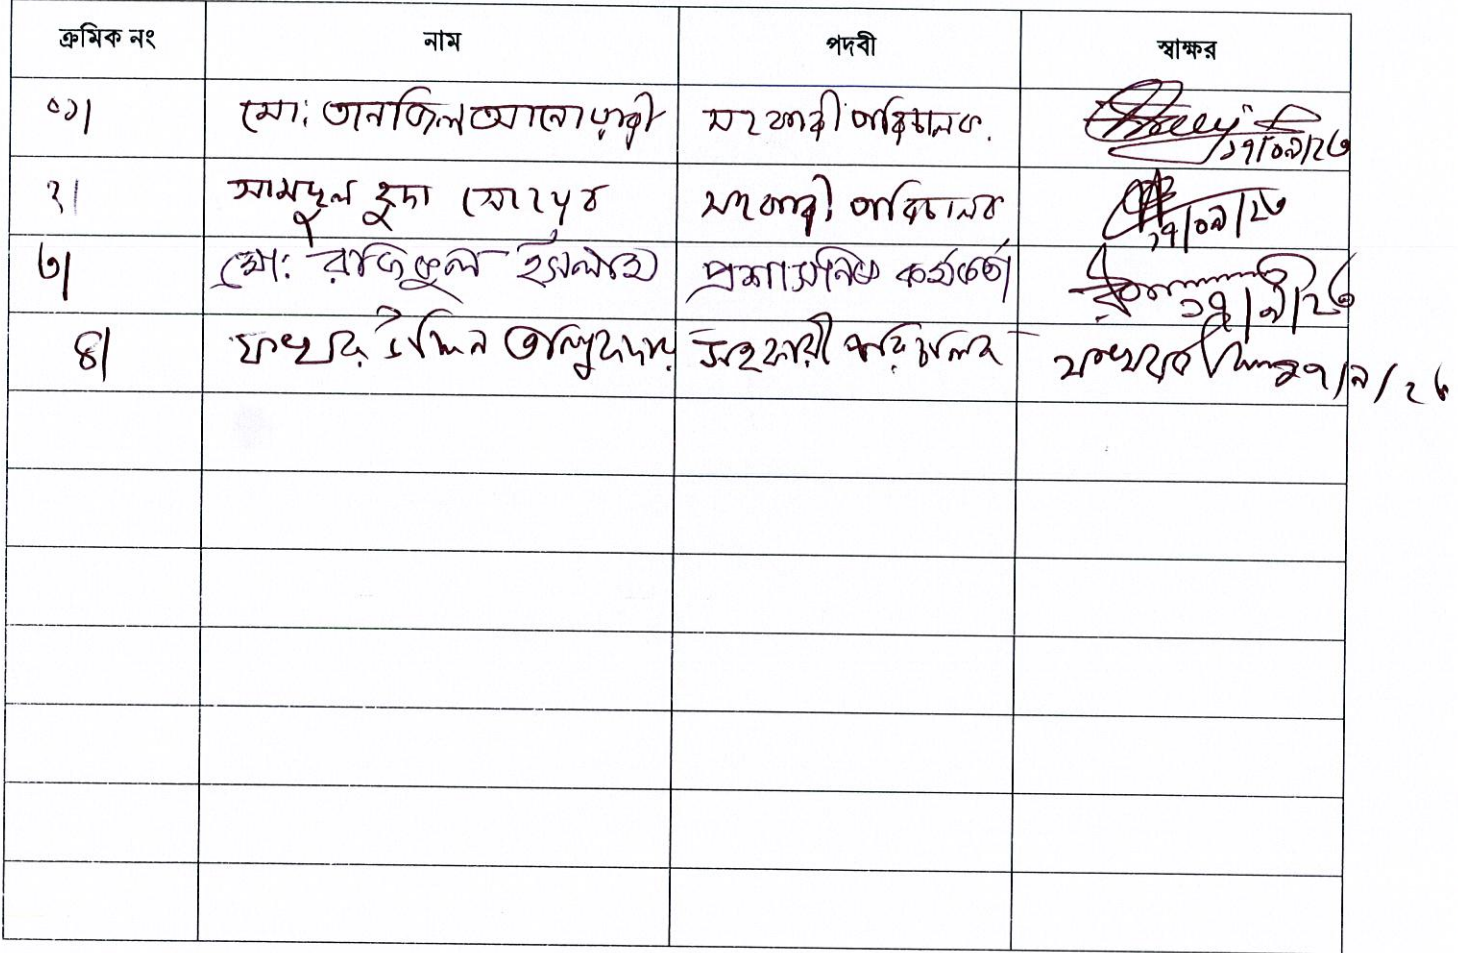 ক্রমিক নং নাম পদবী স্বাক্ষর
০১| মো: তানজিল আনোয়ারী সহকারী পরিচালক. ১৭/০৯/২৩
২| সহকারী পরিচালক ১৭/০৯/২৩
৩| মো: রাজিকুল ইসলাম প্রশাসনিক কর্মকর্তা ১৭/৯/২৩
৪| ফখর উদ্দিন তালুকদার সহকারী পরিচালক